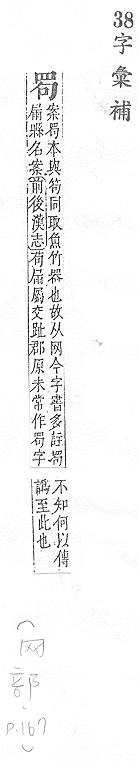 38 字彙補
案本與笱同取魚竹器也故从网今字書多註
屚縣名案前後漢志苟屚屬交趾郡原未常作字
不知何以傳
譌至此也
(网部 p.167)